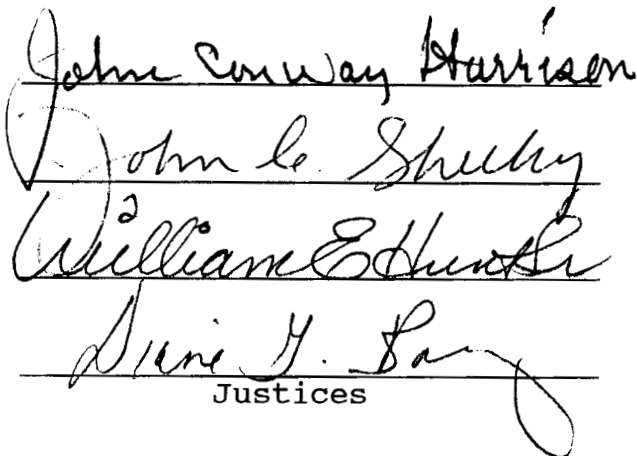 John Conway Harrison
John C. Sheehy
William E Hunt Sr
Diane G. Barz
Justices